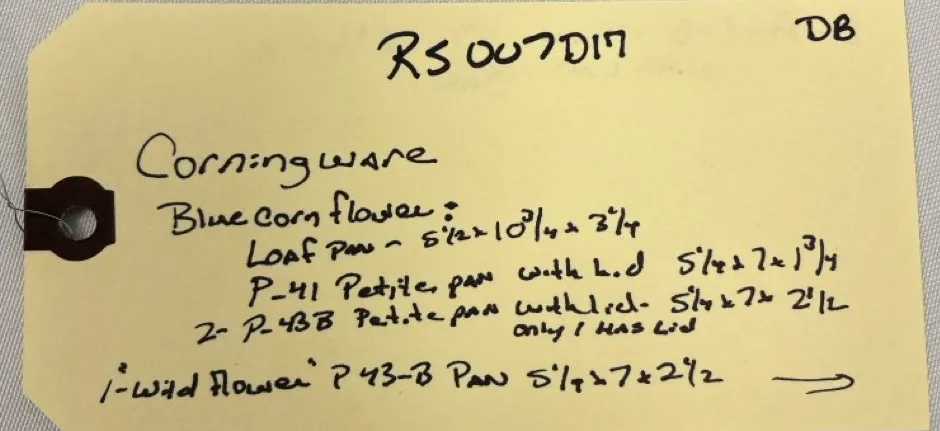 DB
RS007D17
Corningware
Blue cornflower:
Loaf Pan - 5 1/2 x 10 3/4 x 3 1/4
P-41 Petite pan with Lid 5 1/4 x 7 x 1 3/4
2- P-43B Petite pan with lid- 5 1/4 x 7 x 2 1/2
only 1 HAS Lid
1-"Wild flower" P 43-B Pan 5 1/4 x 7 x 2 1/2 →